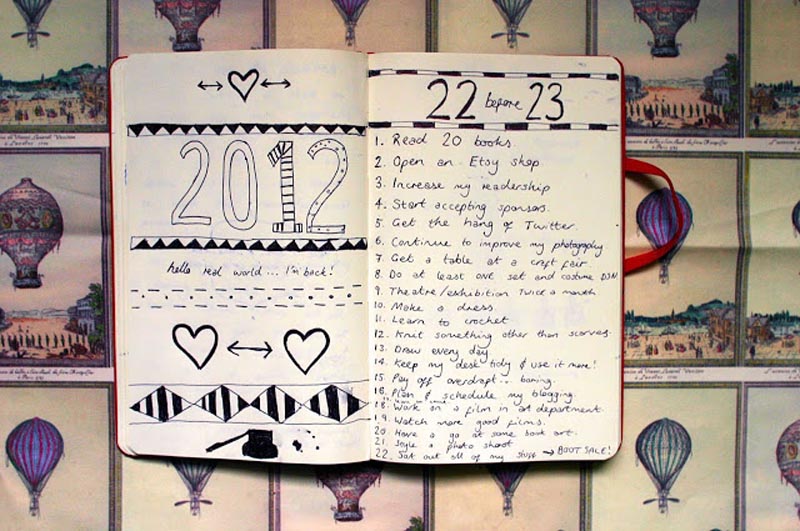 2012
hello real world... I'm back!
22 before 23
1. Read 20 books.
2. Open an Etsy shop.
3. Increase my readership
4. Start accepting sponsors.
5. Get the hang of Twitter.
6. Continue to improve my photography
7. Get a table at a craft fair.
8. Do at least one set and costume DSN
9. Theatre/exhibition Twice a month
10. Make a dress.
11. Learn to crochet
12. Knit something other than scarves.
13. Draw every day
14. Keep my desk tidy & use it more!
15. Pay off overdraft... boring.
16. Plan & schedule my blogging.
18. Work on a film in art department.
19. Watch more good films.
20. Have a go at some book art.
21. Style a photo shoot
22. Sort out all of my stuff → BOOT SALE!